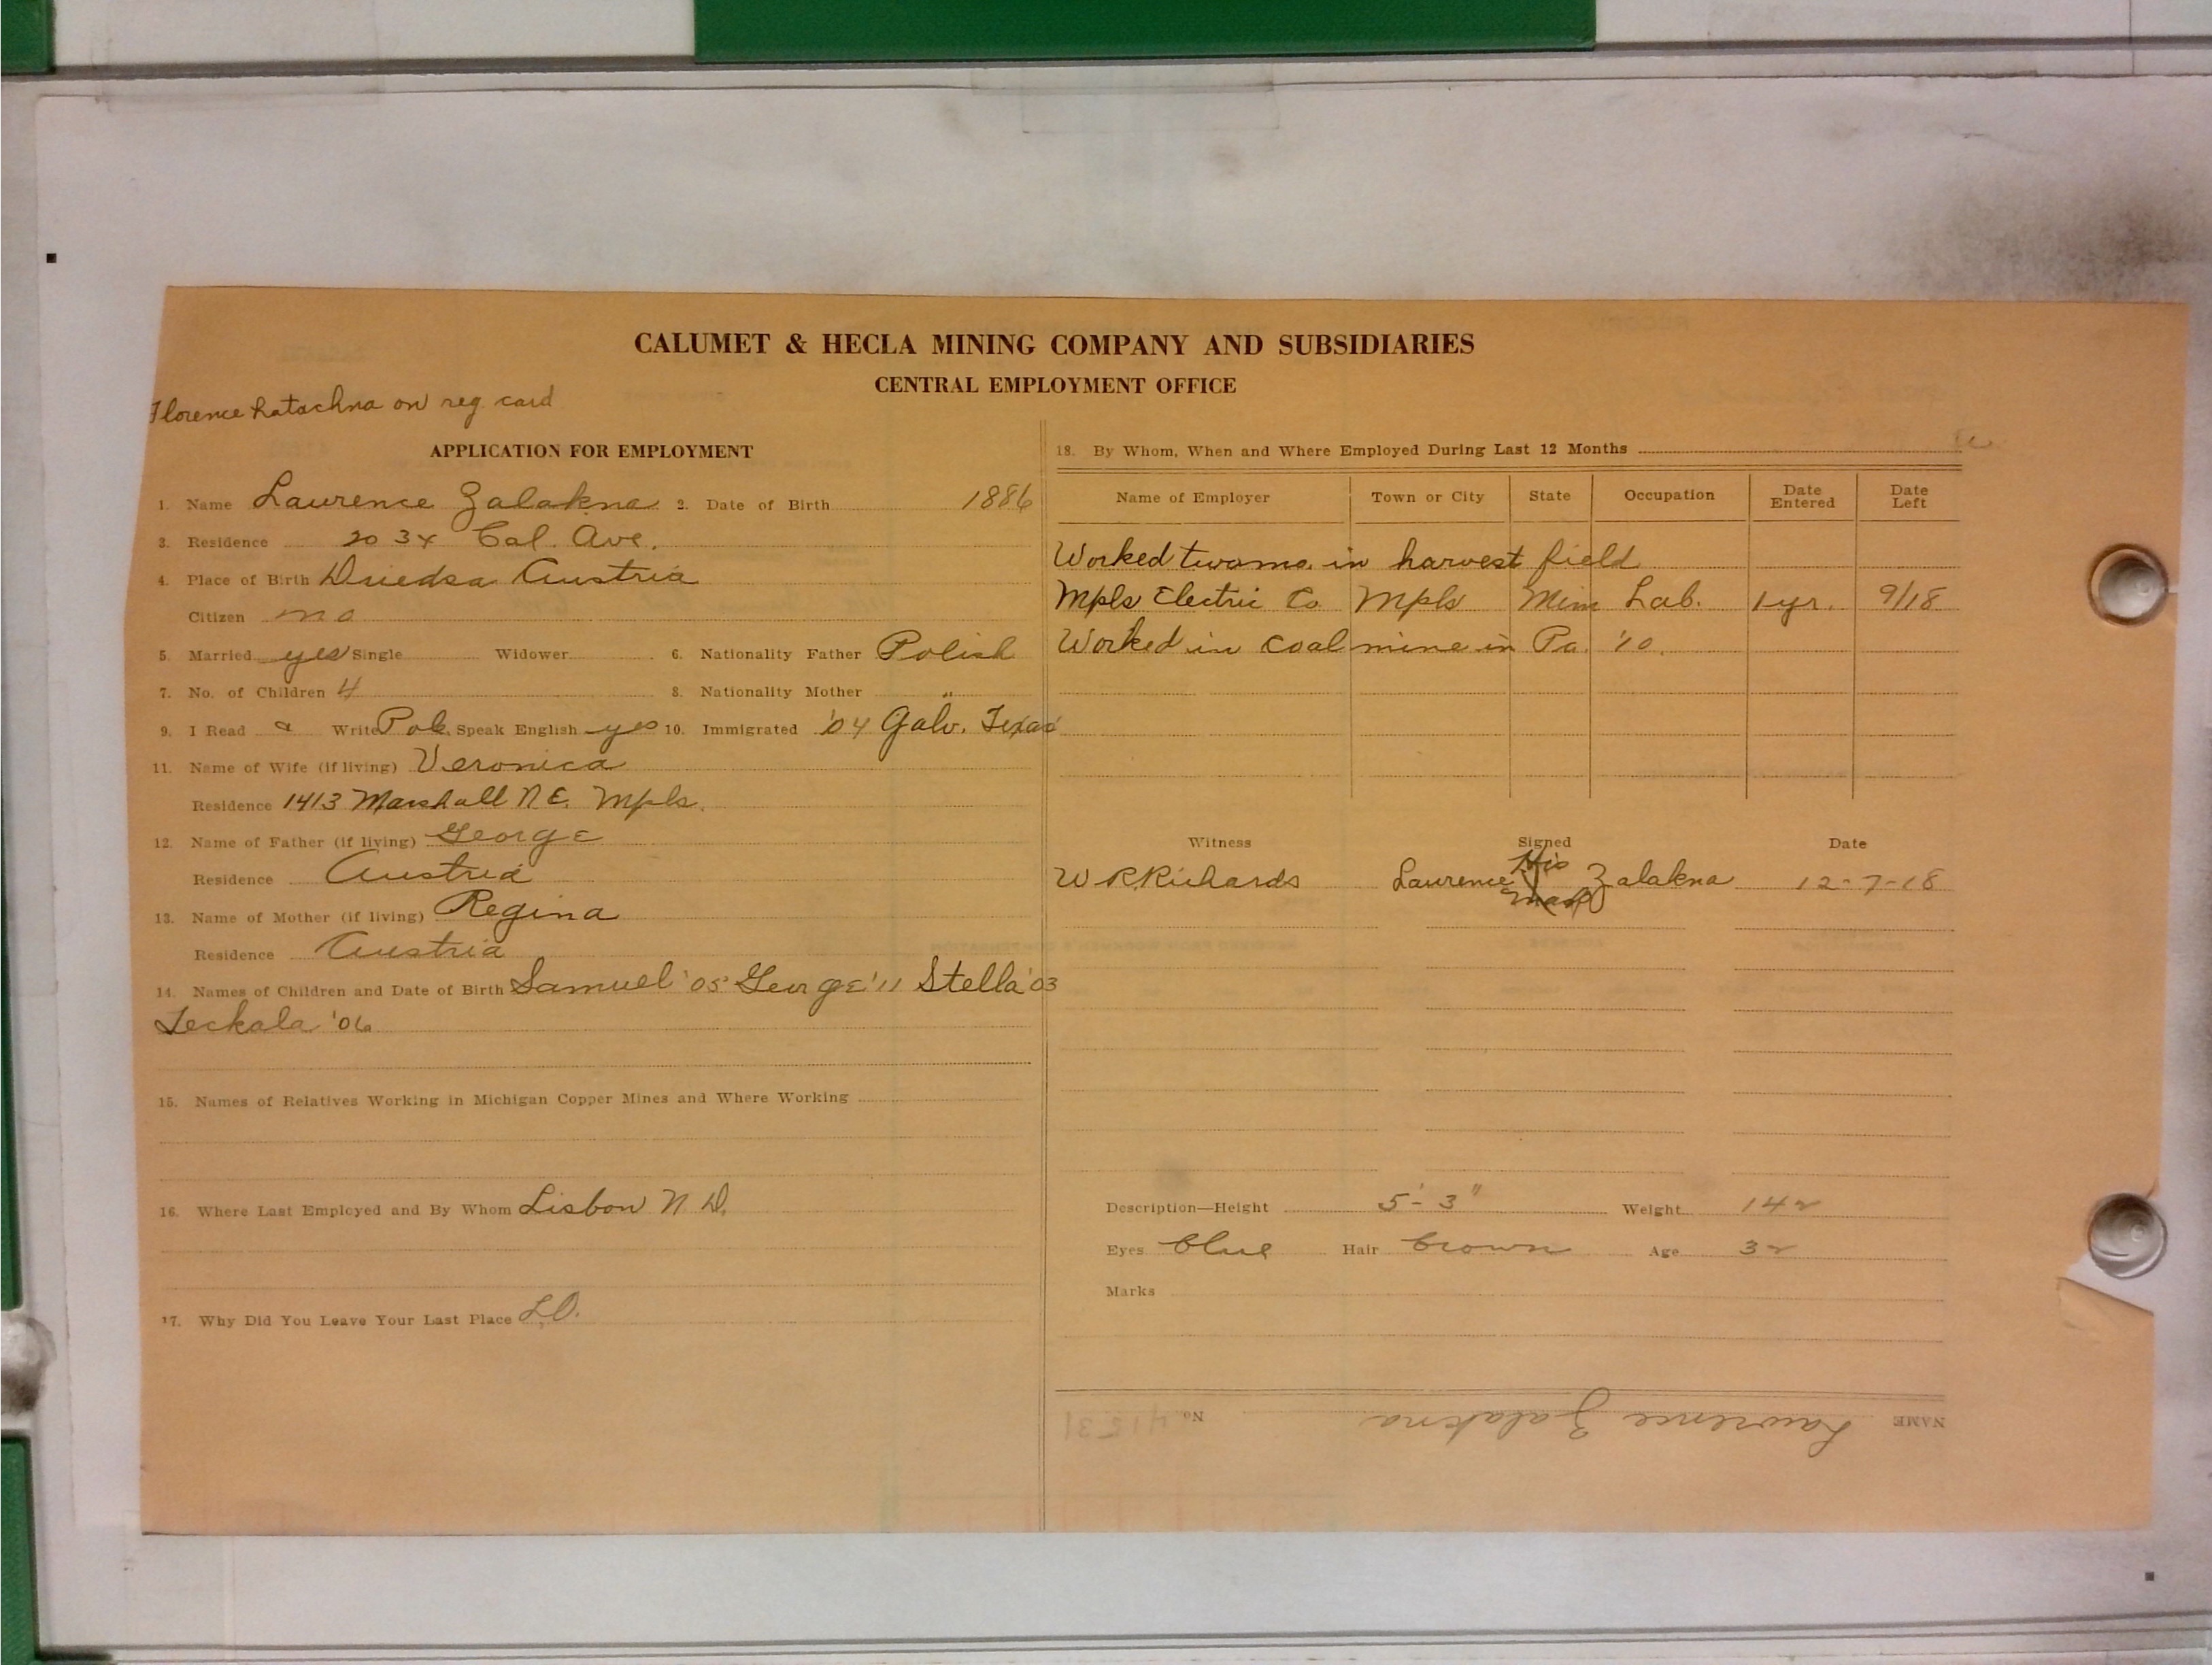 CALUMET & HECLA MINING COMPANY AND SUBSIDIARIES
CENTRAL EMPLOYMENT OFFICE
Florence Latachna on reg. card
APPLICATION FOR EMPLOYMENT
1. Name Laurence Zalakna 2. Date of Birth 1886
3. Residence 2034 Cal. Ave.
4. Place of Birth Austria
Citizen no
5. Married yes Single Widower 6. Nationality Father Polish
7. No. of Children 4 8. Nationality Mother "
9. I Read & Write Pol. Speak English yes 10. Immigrated '04 Galv. Texas
11. Name of Wife (if living) Veronica
Residence 1413 Marshall N.E. Mpls.
12. Name of Father (if living) George
Residence Austria
13. Name of Mother (if living) Regina
Residence Austria
14. Names of Children and Date of Birth Samuel '05 George '11 Stella '03
Teckala '06
15. Names of Relatives Working in Michigan Copper Mines and Where Working
16. Where Last Employed and By Whom Lisbon N.D.
17. Why Did You Leave Your Last Place L.O.
18. By Whom, When and Where Employed During Last 12 Months
Name of Employer Town or City State Occupation Date Entered Date Left
Worked two mo. in harvest field
Mpls Electric Co. Mpls Minn Lab. 1 yr. 9/18
Worked in coal mine in Pa. '10.
Witness Signed Date
W R Richards Laurence His X mark Zalakna 12-7-18
Description—Height 5'-3" Weight 142
Eyes blue Hair brown Age 32
Marks
NAME Lawrence Zalakna No.